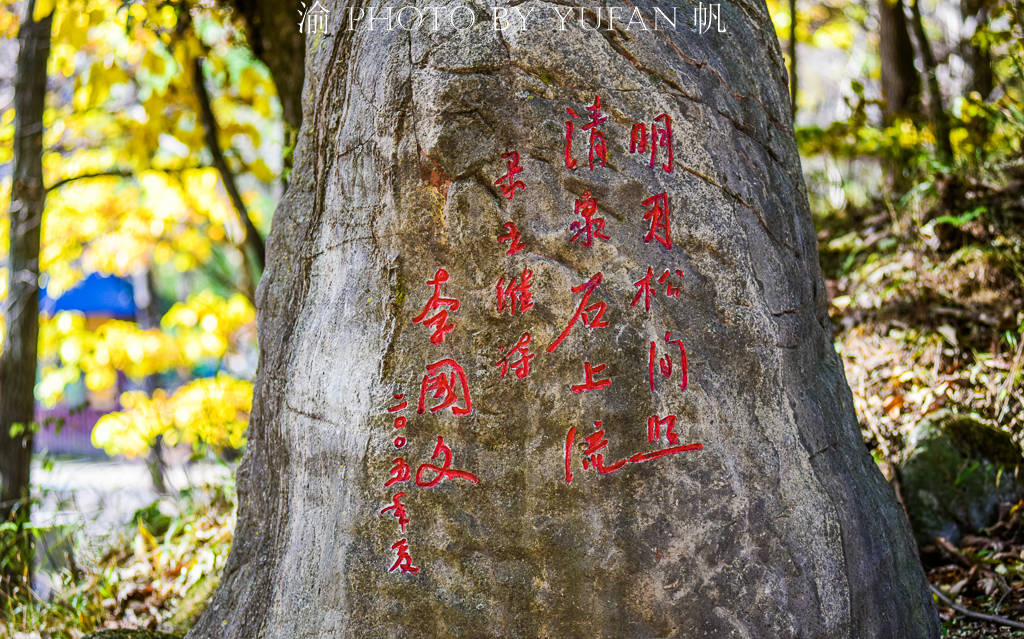 渝 PHOTO BY YUFAN 帆
明月松间照
清泉石上流
录王维诗
李國文
二〇〇五年夏